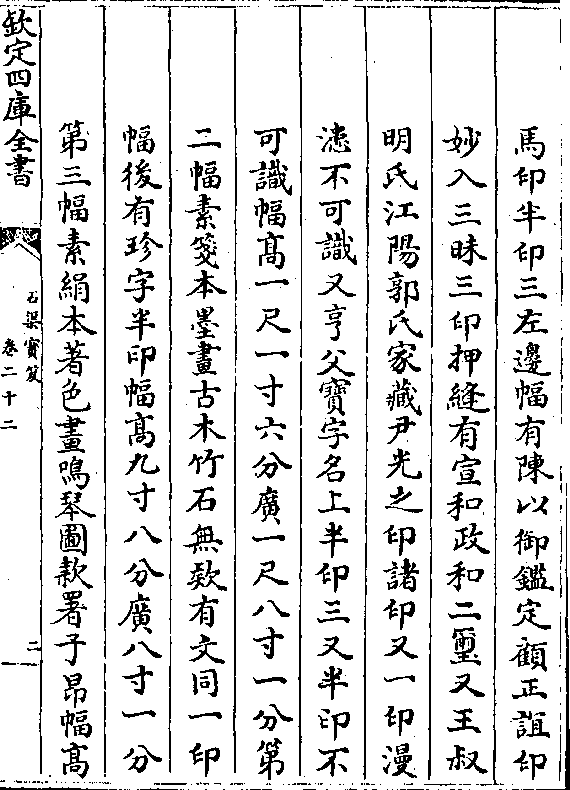 馬印半印三左邊幅有陳以御鑑定顧正誼印
妙入三昧三印押縫有宣和政和二璽又王叔
明氏江陽郭氏家藏尹光之印諸印又一印漫
漶不可識又亨父寶字名上半印三又半印不
可識幅髙一尺一寸六分廣一尺八寸一分第
二幅素箋本墨畫古木竹石無欵有文同一印
幅後有珍字半印幅髙九寸八分廣八寸一分
第三幅素絹本著色畫鳴琴圖欵署子昂幅髙
欽定四庫全書
石渠寶笈
卷二十二
二